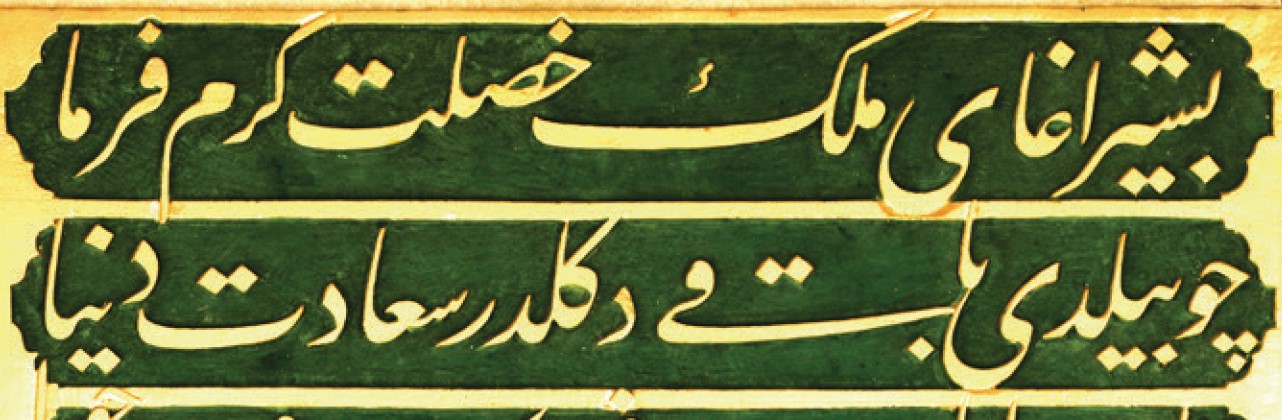 بشیر اغای ملك خصلت كرم فرما
چو بیلدی باقی دكلدر سعادت دنیا